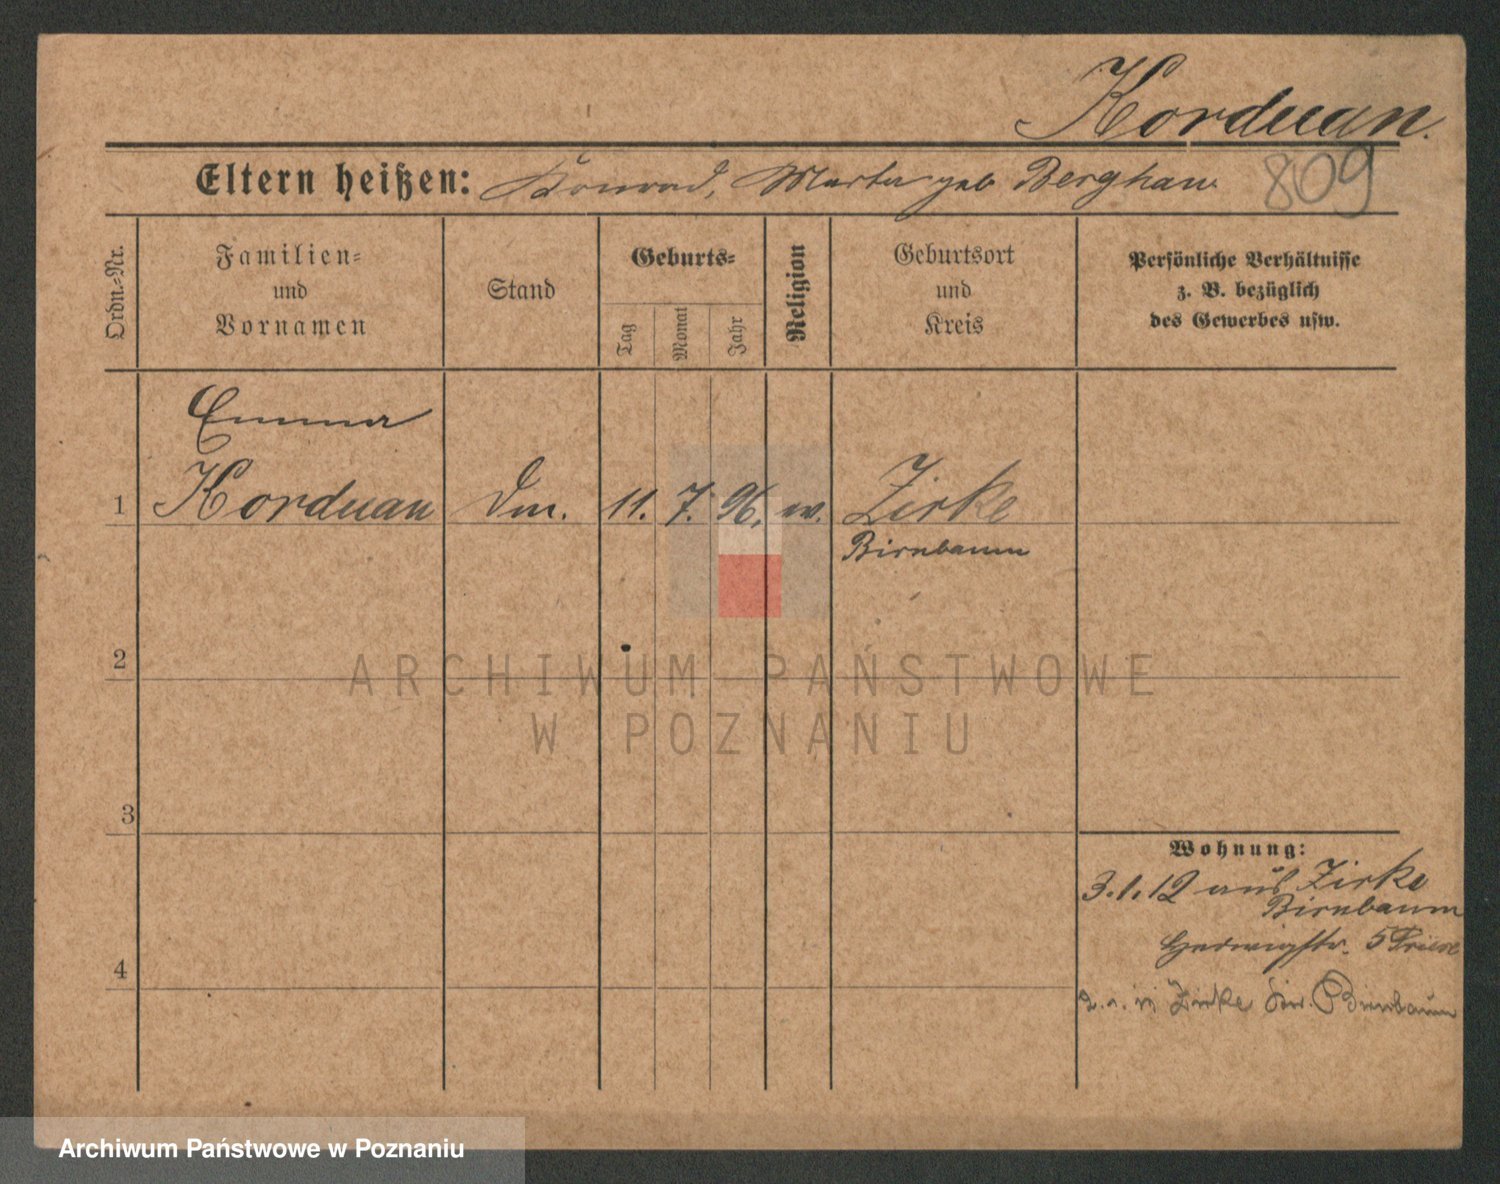 Korduan.
Eltern heißen: Konrad, Marta geb Berghan
809
Ordn.-Nr.
Familien-
und
Vornamen
Stand
Geburts-
Tag
Monat
Jahr
Religion
Geburtsort
und
Kreis
Persönliche Verhältnisse
z. B. bezüglich
des Gewerbes usw.
Emma
1 Korduan 11. 7. 96. ev. Zirke
Birnbaum
2
ARCHIWUM PAŃSTWOWE
W POZNANIU
3
Wohnung:
3.1.12 aus Zirke
Birnbaum
Hedwigstr. 5
4
Zirke Birnbaum
Archiwum Państwowe w Poznaniu